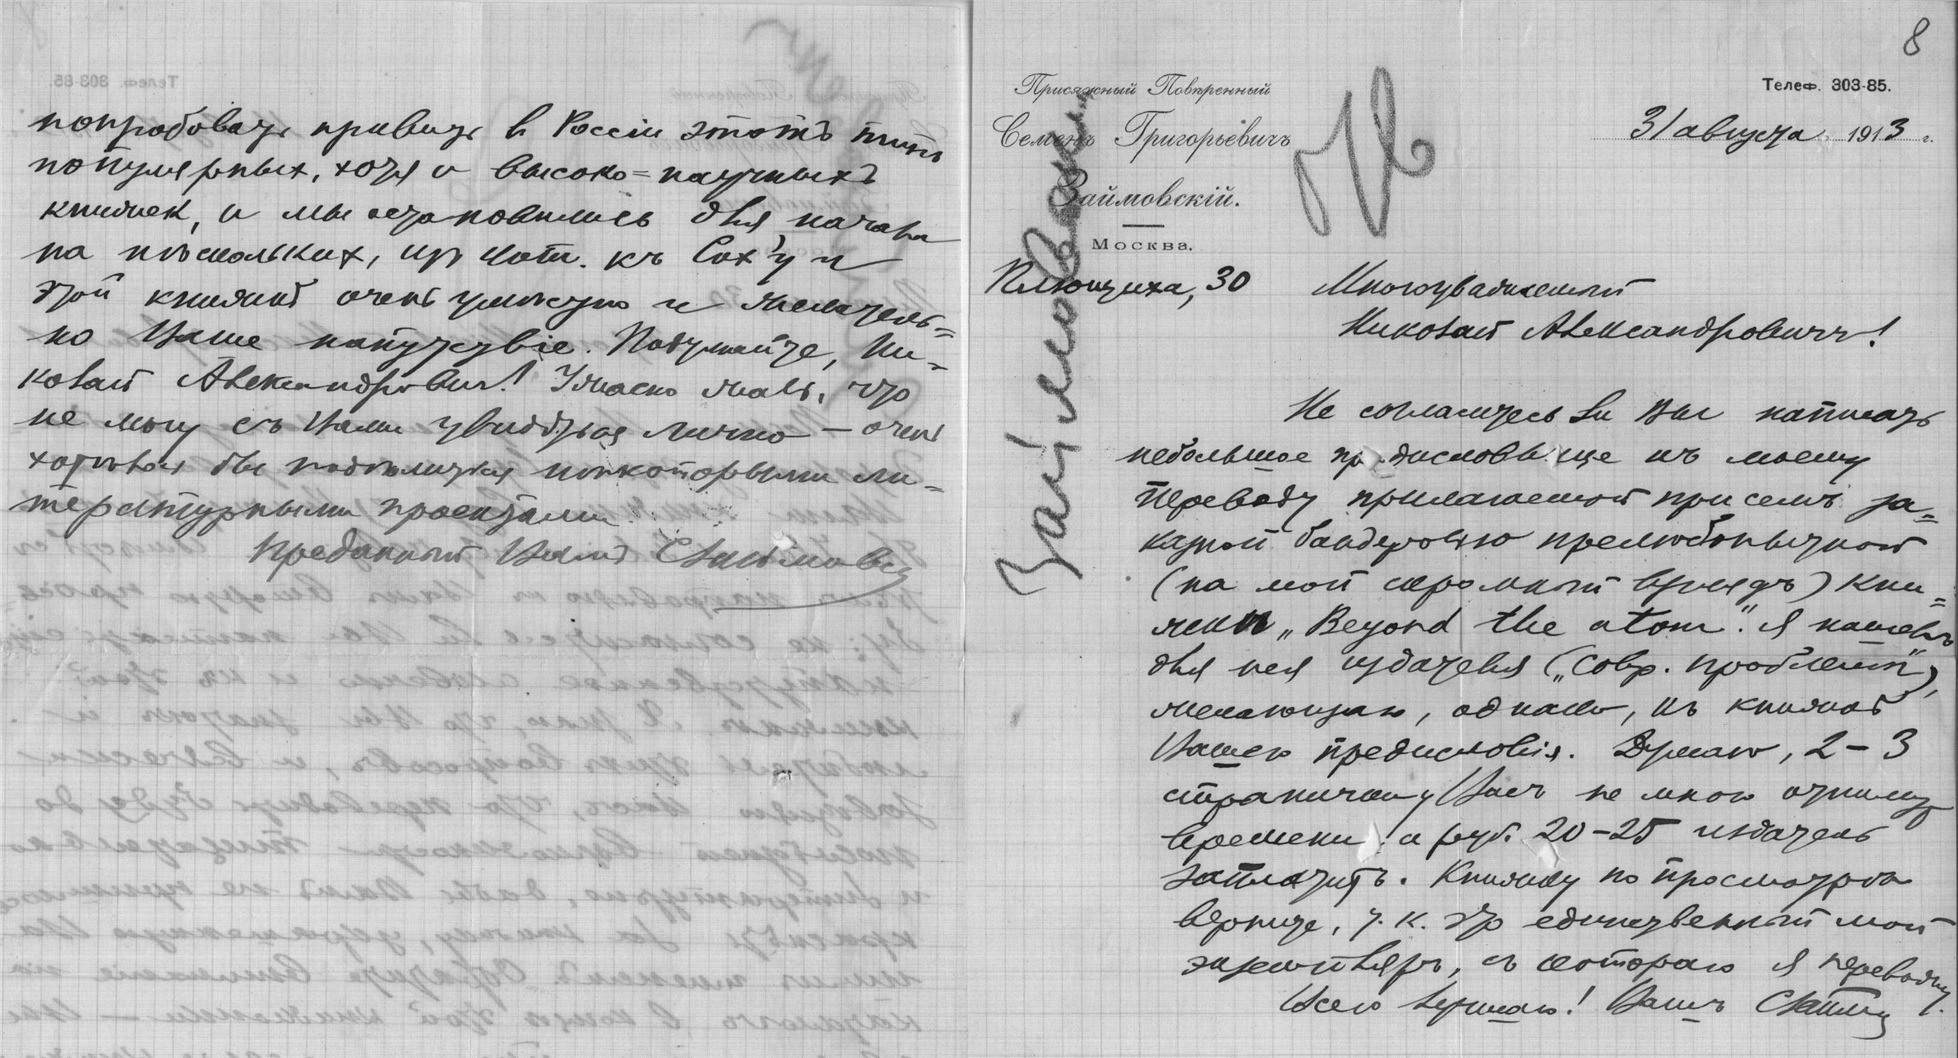 попробовать привить в Россіи этотъ типъ
популярных, хотя и высоко=научныхъ
книжек, и мы остановились для начала
на нѣскольких, из кот. къ Сох'у и
этой книжкѣ очень умѣстно и желатель=
но Ваше напутствіе. Подумайте, Ни=
колай Александрович! Ужасно жаль, что
не могу съ Вами увидѣться лично – очень
хотѣлось бы подѣлиться нѣкоторыми ли=
тературными проектами
Преданный Вамъ
8
Присяжный Повѣренный
Семенъ Григорьевичъ
Займовскій.
Москва.
Телеф. 303-85.
31 августа 1913 г.
Займовский
Плющиха, 30
Многоуважаемый
Николай Александровичъ!
Не согласитесь ли Вы написать
небольшое предисловьице къ моему
переводу прилагаемой при семъ за=
казной бандеролью прелюбопытной
(на мой скромный взглядъ) кни=
жки „Beyond the atom". Я нашелъ
для нея издателя („Совр. проблемы"),
желающаго, однако, къ книжкѣ
Вашего предисловія. Думаю, 2–3
странички у Васъ не много отнимут
времени, а руб. 20–25 издатель
заплатитъ. Книжку по просмотрѣ
верните, т. к. это единственный мой
экземпляръ, съ котораго я перевожу.
Всего лучшаго! Вашъ